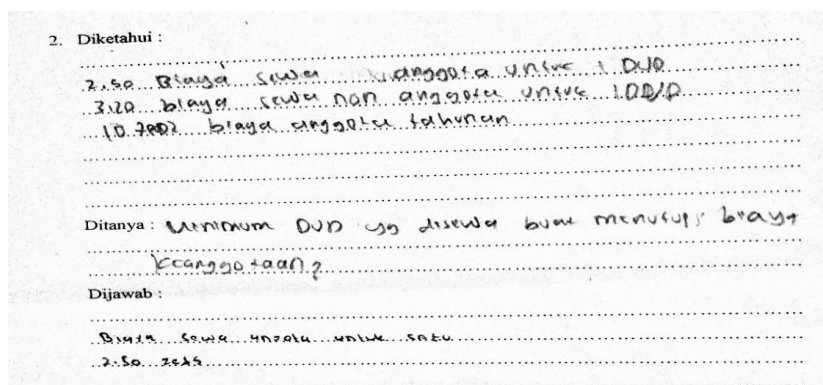 2. Diketahui :
2.50 Biaya sewa anggota untuk 1 DVD
3.20 biaya sewa non anggota untuk 1 DVD
10 biaya anggota tahunan
Ditanya : Minimum DVD yg disewa buat menutupi biaya
keanggotaan?
Dijawab :
Biaya sewa untuk satu
2.50 zeds